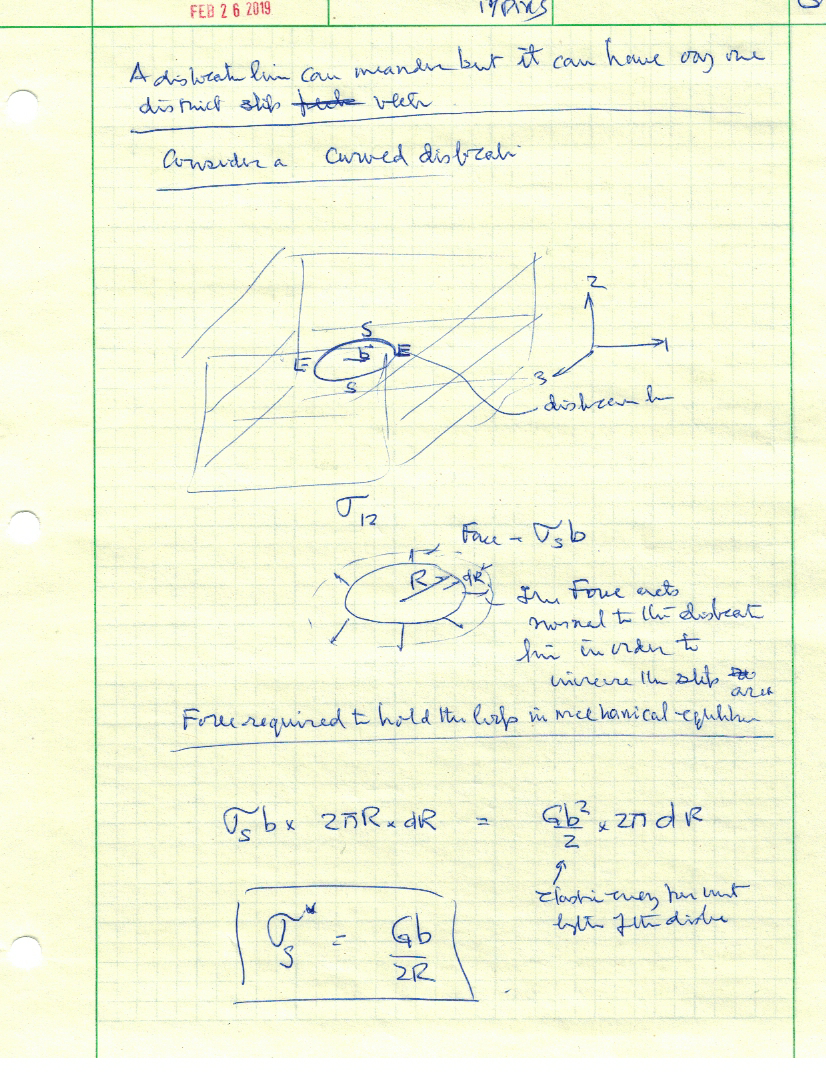 FEB 26 2019
A dislocati line can meander but it can have only one
distinct slip vector
Consider a curved dislocati
2
S
E b E
1
S
3
dislocation line
σ12
Force = σs b
R dR
The Force acts
normal to the dislocat
line in order to
increase the slip area
Force required to hold the loop in mechanical equilibrium
σs b x 2πR x dR = Gb²/2 x 2π dR
Elastic energy per unit
length of the disloc
σs* = Gb/2R